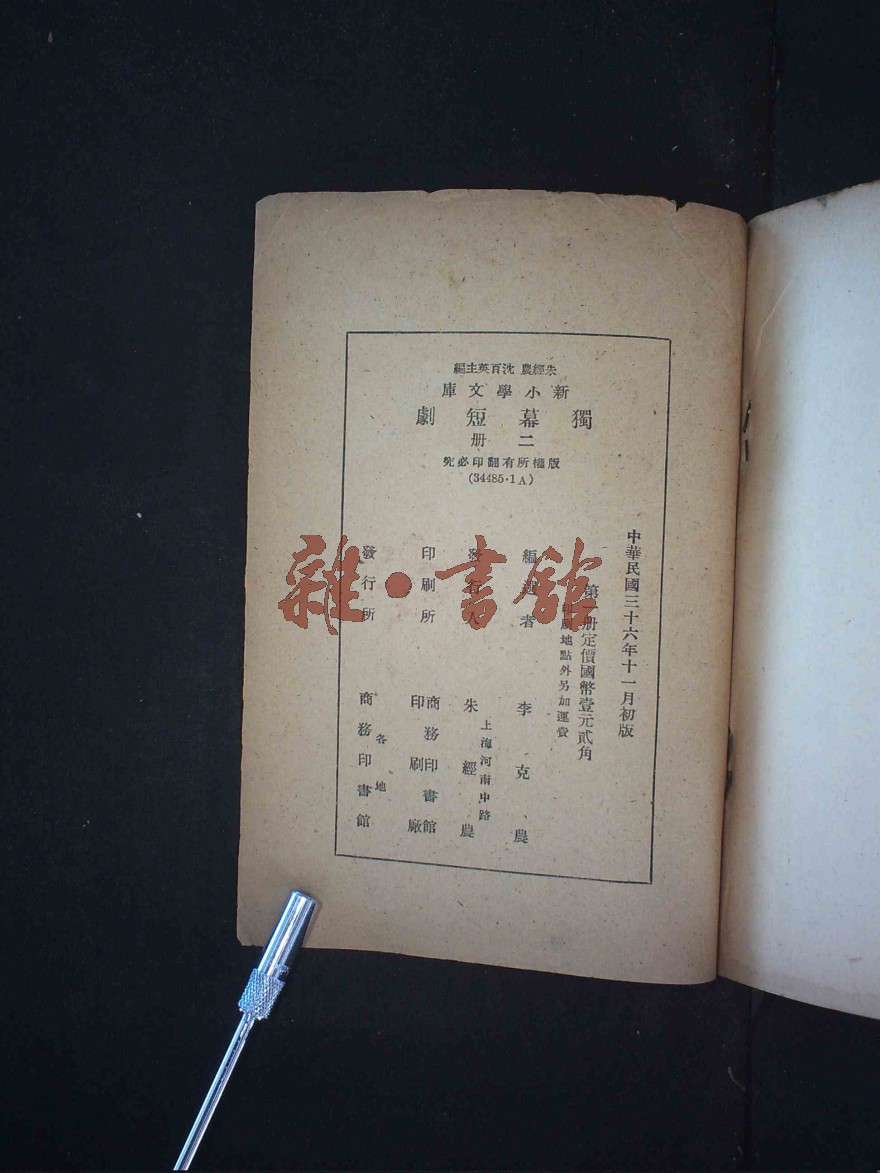 朱經農 沈百英主編
新小學文庫
獨幕短劇
二册
版權所有翻印必究
(34485·1A)
中華民國三十六年十一月初版
第 册定價國幣壹元貳角
印刷地點外另加運費
編 者 李克農
發行人 朱經農
上海河南中路
印刷所 商務印書館
印刷廠
發行所 各地
商務印書館
雜·書館